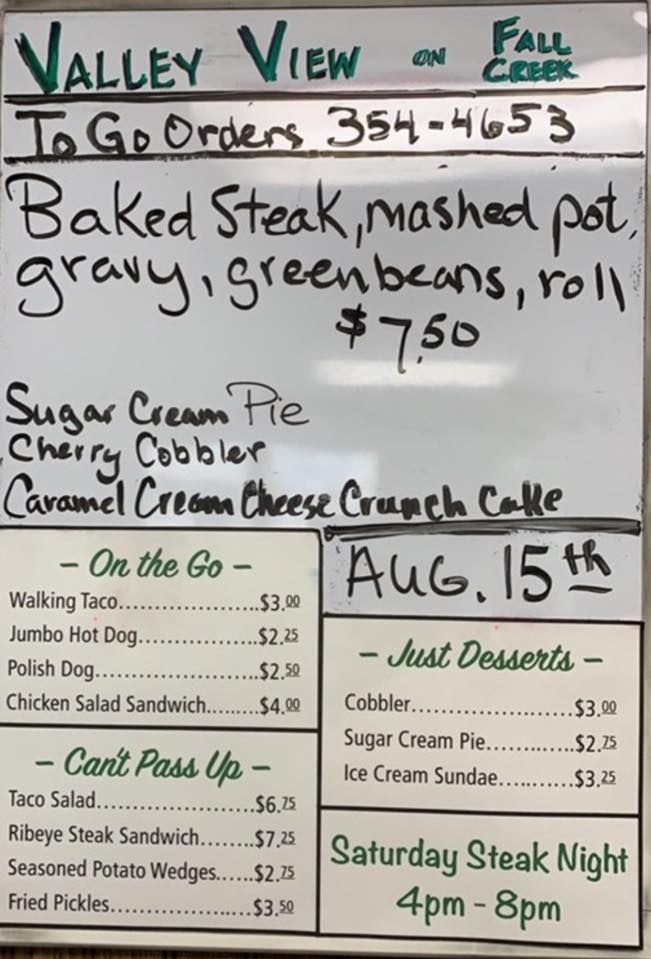 VALLEY VIEW ON FALL CREEK
To Go Orders 354-4653
Baked Steak, mashed pot,
gravy, green beans, roll
$7.50
Sugar Cream Pie
Cherry Cobbler
Caramel Cream Cheese Crunch Cake
AUG. 15th
– On the Go –
Walking Taco....................$3.00
Jumbo Hot Dog.................$2.25
Polish Dog.......................$2.50
Chicken Salad Sandwich........$4.00
– Can't Pass Up –
Taco Salad.......................$6.75
Ribeye Steak Sandwich.......$7.25
Seasoned Potato Wedges.....$2.75
Fried Pickles.....................$3.50
– Just Desserts –
Cobbler.......................$3.00
Sugar Cream Pie.............$2.75
Ice Cream Sundae...........$3.25
Saturday Steak Night
4pm - 8pm